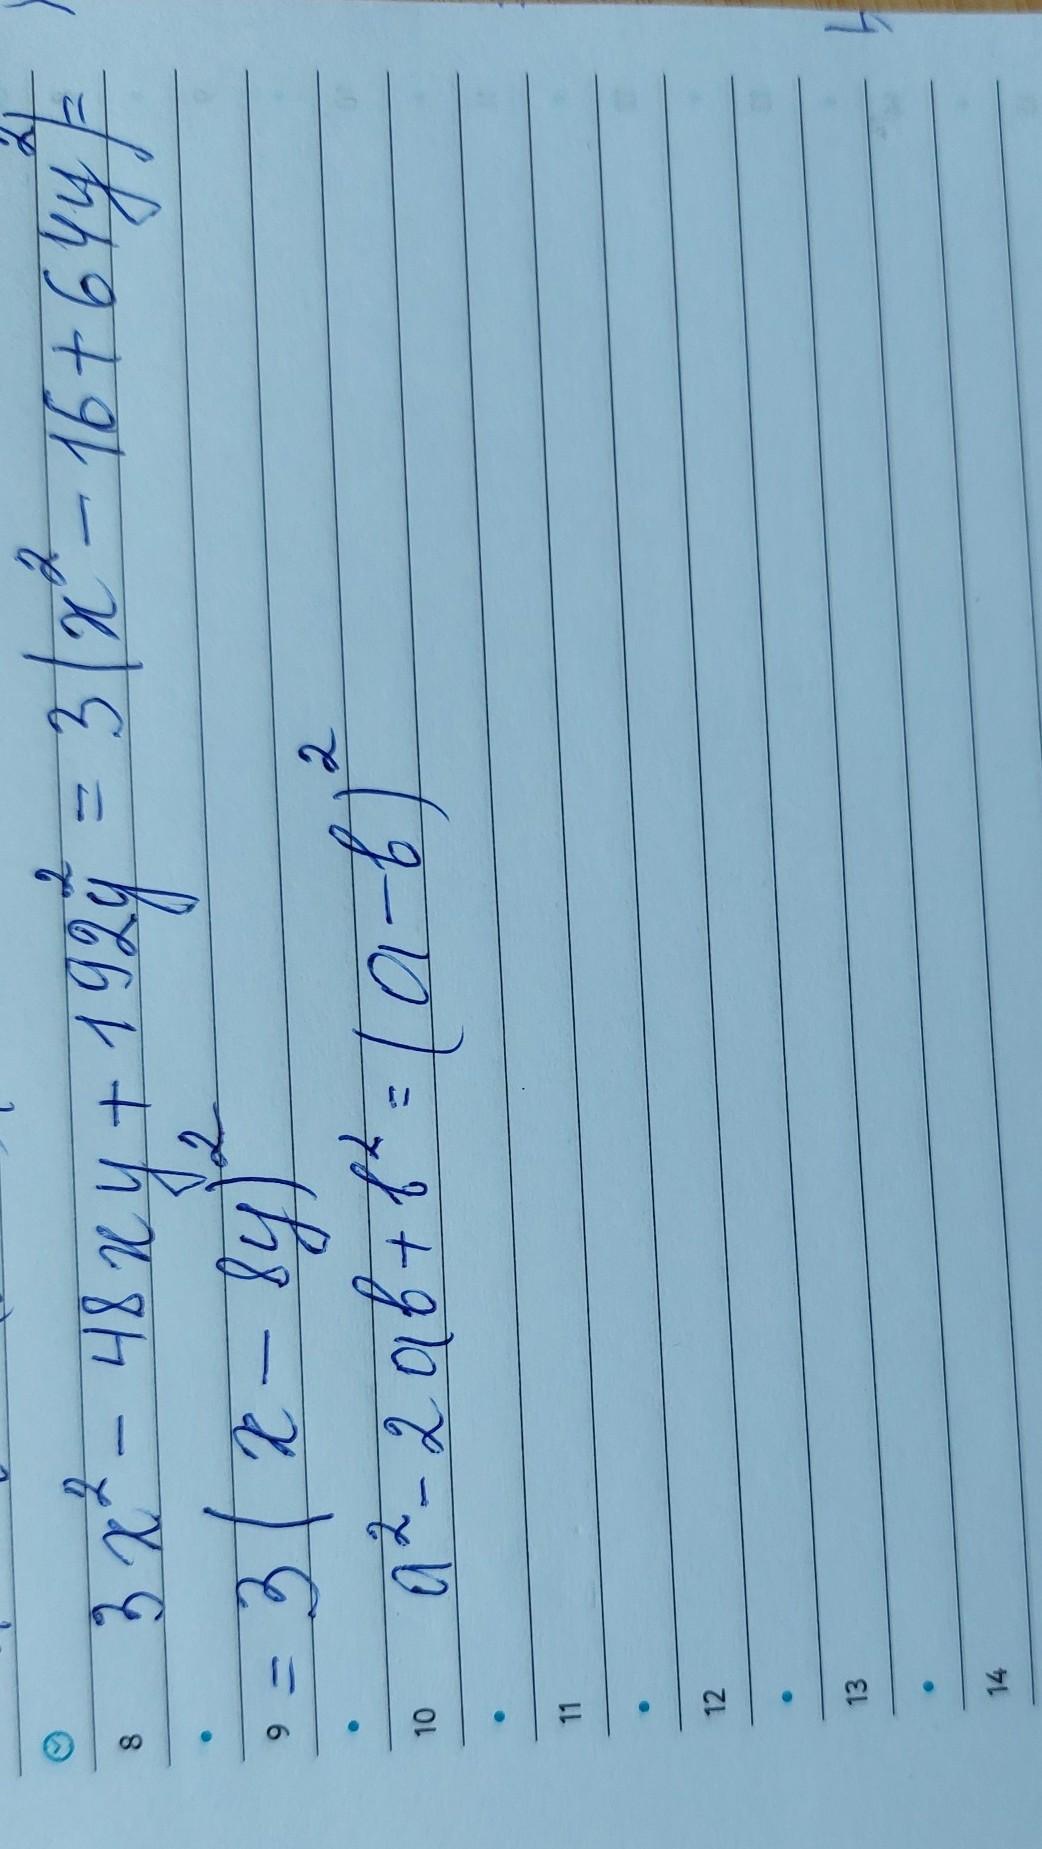 3x² - 48xy + 192y² = 3(x² - 16 + 64y²) =
= 3(x - 8y)²
a² - 2ab + b² = (a - b)²
8
9
10
11
12
13
14